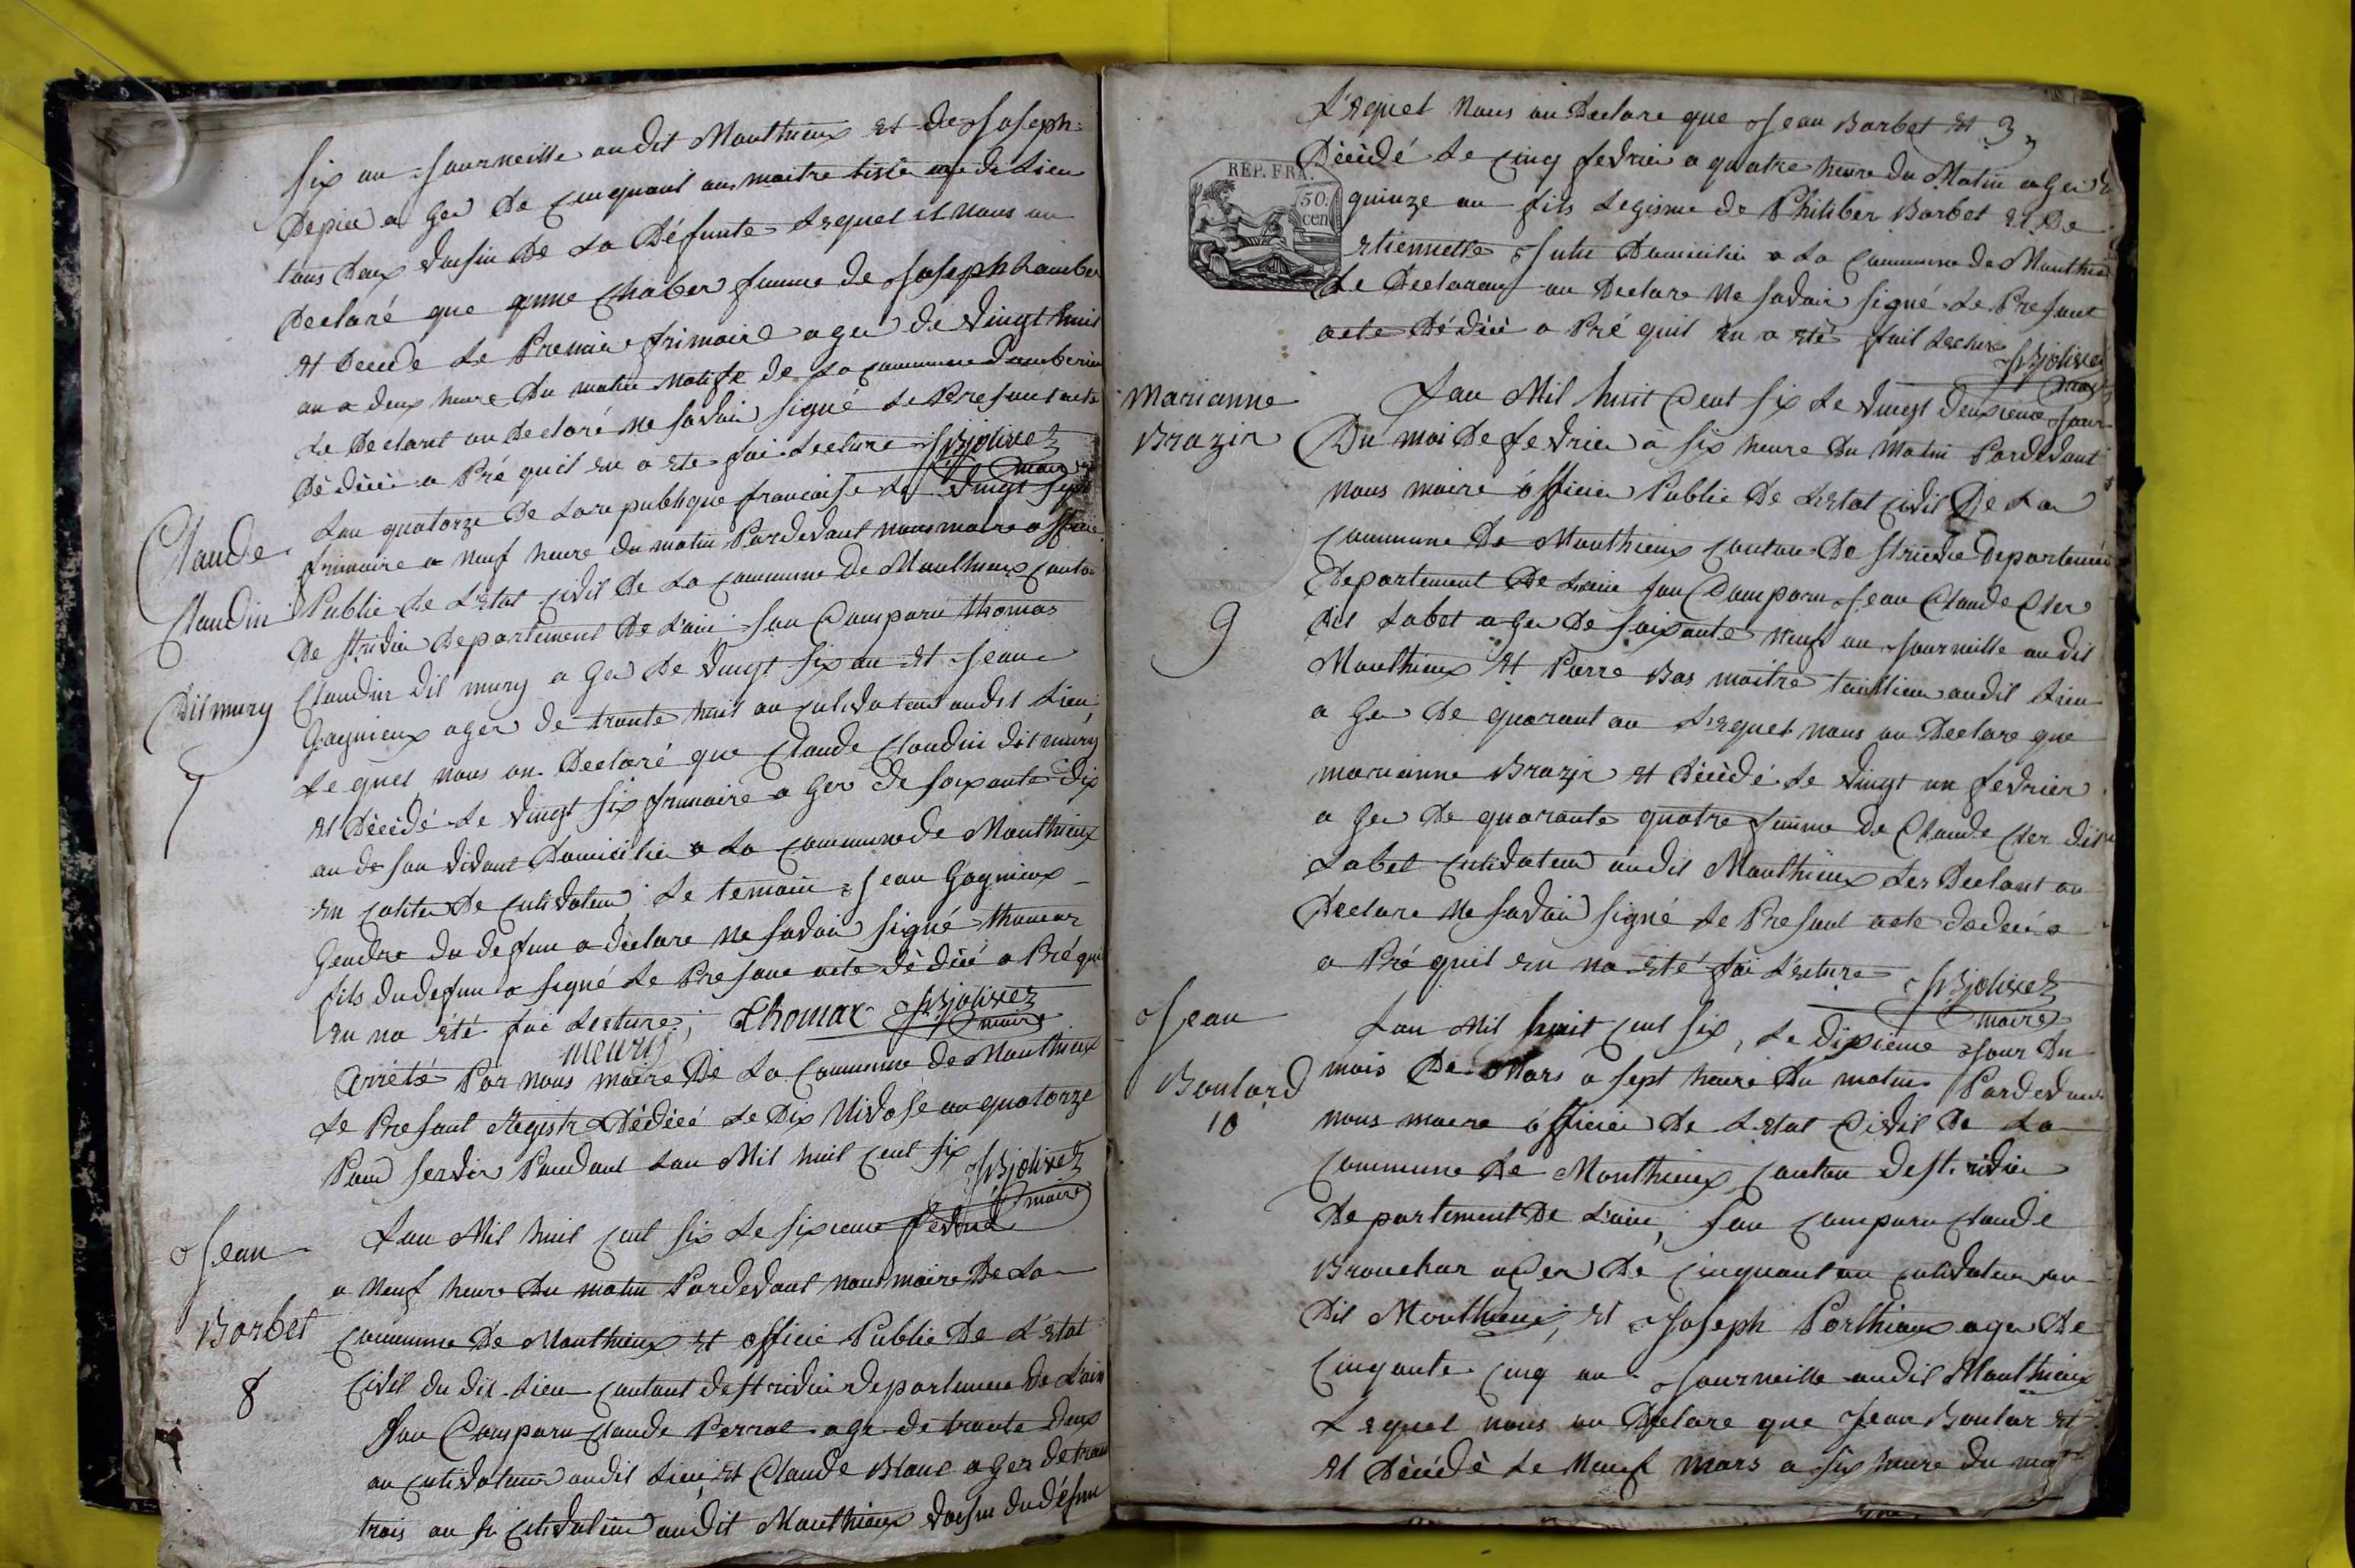 six an journeille audit Monthieux et de Joseph
Depiee a ger de cinquant an maitre tisie audi Lieu
tous deux voisin De La Défunte Lequel il nous on
Declaré que anne Chaber femme de Joseph hamber
et Decede Le Premier frimaire a ger de vingt huit
an a deux heure Du matin natife de La commune damberieu
Le Declant on Declaré ne savoir signé Le Presant acte
Dédicé a Pré quil en a ete fai Lecture JBjolivet
maire
Claude
Claudin
Dit mury
7
Lan quatorze De La republique francaise Le vingt sept
frimaire a neuf heure du matin Pardevant nous maire officie
Public de L'etat civil de La commune De Monthieux canton
De st rivier Departement De L'ain son Comparu thomas
Claudin dit mury a ger De vingt six an et Jean
Gagnieux ager de trante huit an cultivateur audit Lieu
Lequel nous on Declaré que Claude Claudin dit mury
et Décédé Le vingt six frimaire a ger de soixante Dix
an de son vivant Domicilié a La commune de Monthieux
en calite De cultivateur Le temoin Jean Gagnieux
Gendre du defun a declare ne savoir signé thomas
fils dudefun a signé Le Presant acte dédicé a Pré quil
en na été fai Lecture, Thomax JBjolivet
meury maire
Arrêté Par nous maire De La Commune de Monthieux
Le Presant Registr Dédicé Le Dix nivose an quatorze
Pour servir Pandant Lan Mil huit cent six JBjolivet
maire
Jean
Borbet
8
Lan Mil huit cent six Le sixieme fevrié
a neuf heure Du matin Pardevant nous maire De La
commune De Monthieux et officié Public De L'etat
Civil du dit Lieu cantant de st rivier departement De L'ain
son Comparu Claude Perrol age de trante Deux
an cultivateur audit Lieu, et Claude Blanc a ger de tran
trois an cultivateur audit Monthieux voisin du défun
3
L'equel nous on Declare que Jean Borbet et
Décédé Le cinq fevrier a quatre heure Du Matin a ger de
quinze an fils Legisme de Philiber Borbet et De
etiennette Jutu Domicilié a La Commune de Monthieux
Le Declarans on Declare Ne savoir signé Le Presant
acte Dédicé a Pré quil en a été fait Lecture JBjolivet
maire
REP. FRA.
50.
cen
Marianne
Brazir
9
Lan Mil huit Cent six Le vingt deuxieme Jour
Du moi De fevrier a six heure Du Matin Pardevant
nous maire officier Public De Letat civil De La
commune De Monthieux canton De st rivie Departemen
Departement De L'ain son Comparu Jean Claude Cler
dit Labet a ger De soixante neuf an journeille audit
Monthieux et Pierre Bas maitre taillieur audit Lieu
a ger De quarant an L'equel nous on Declare que
marianne Brazir et Décédé Le vingt un fevrier
a ger De quarante quatre femme De Claude Cler dit
Labet cultivateur audit Monthieux Les Declant on
Declare Ne savoir signé Le Presant acte dedicé a
a Pré quil en na été fai L'ecture JBjolivet
maire
Jean
Boulard
10
Lan Mil huit cent six, Le dixieme Jour Du
mois De Mars a sept heure Du matin Pardevant
nous maire officier De Letat Civil De La
Commune De Monthieux canton de st. rivier
Departement De L'ain, son comparu Claude
Brouchar a Ger De cinquant an cultivateur au
dit Monthieux, et Joseph Porthiaux ager De
cinqante cinq an journeille audit Monthieux
Lequel nous on Declare que Jean Boular et
et Décédé Le Neuf mars a six heure du mat